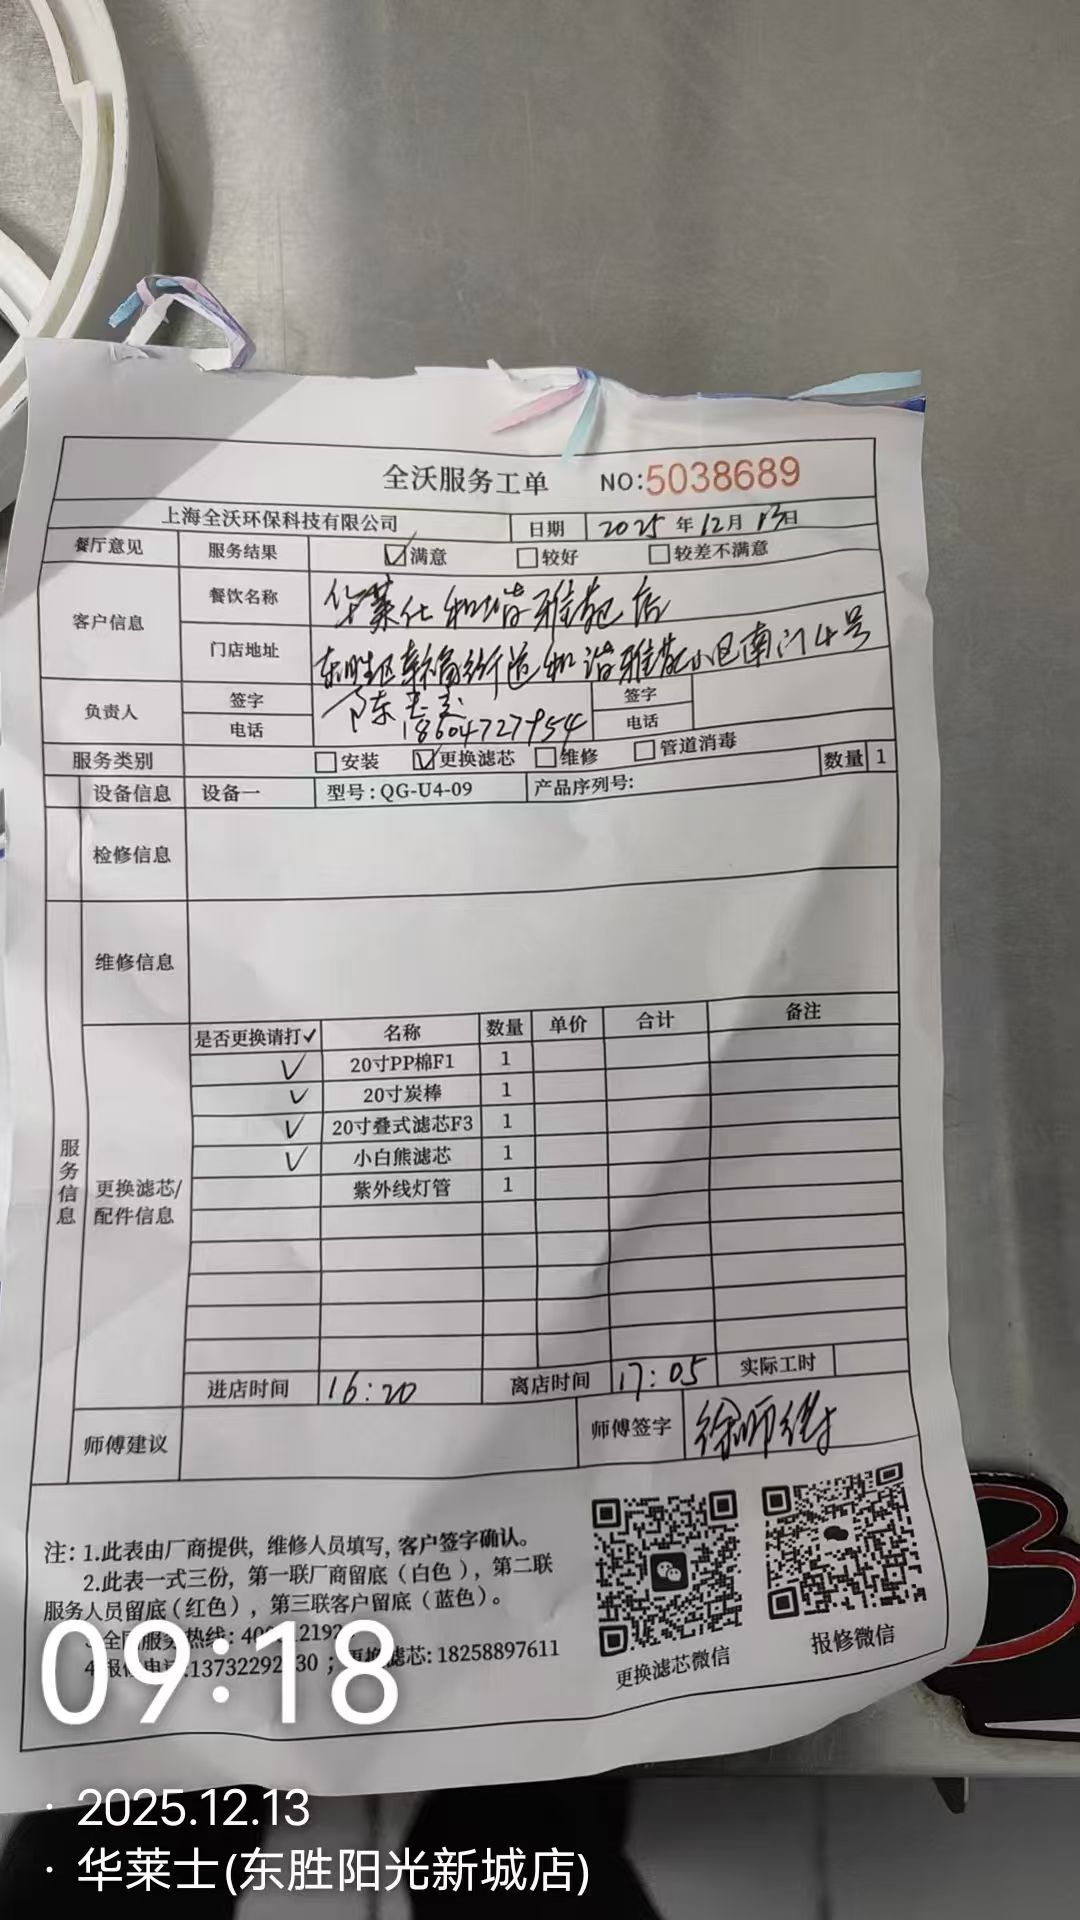 全沃服务工单 NO:5038689
上海全沃环保科技有限公司 日期 2025年12月13日
餐厅意见 服务结果 ☑满意 □较好 □较差不满意
客户信息 餐饮名称 华莱仕和谐雅苑店
门店地址 东胜区 街道和谐雅苑小区南门4号
负责人 签字 陈 签字
电话 18604727954 电话
服务类别 □安装 ☑更换滤芯 □维修 □管道消毒 数量 1
设备信息 设备一 型号:QG-U4-09 产品序列号:
检修信息
维修信息
是否更换请打✓ 名称 数量 单价 合计 备注
✓ 20寸PP棉F1 1
✓ 20寸炭棒 1
✓ 20寸叠式滤芯F3 1
✓ 小白熊滤芯 1
紫外线灯管 1
服务信息
更换滤芯/
配件信息
进店时间 16:20 离店时间 17:05 实际工时
师傅建议 师傅签字 徐师
注: 1.此表由厂商提供, 维修人员填写, 客户签字确认。
2.此表一式三份, 第一联厂商留底(白色), 第二联
服务人员留底(红色), 第三联客户留底(蓝色)。
全国服务热线:
报修电话: ; 更换滤芯: 18258897611
更换滤芯微信 报修微信
09:18
· 2025.12.13
· 华莱士(东胜阳光新城店)